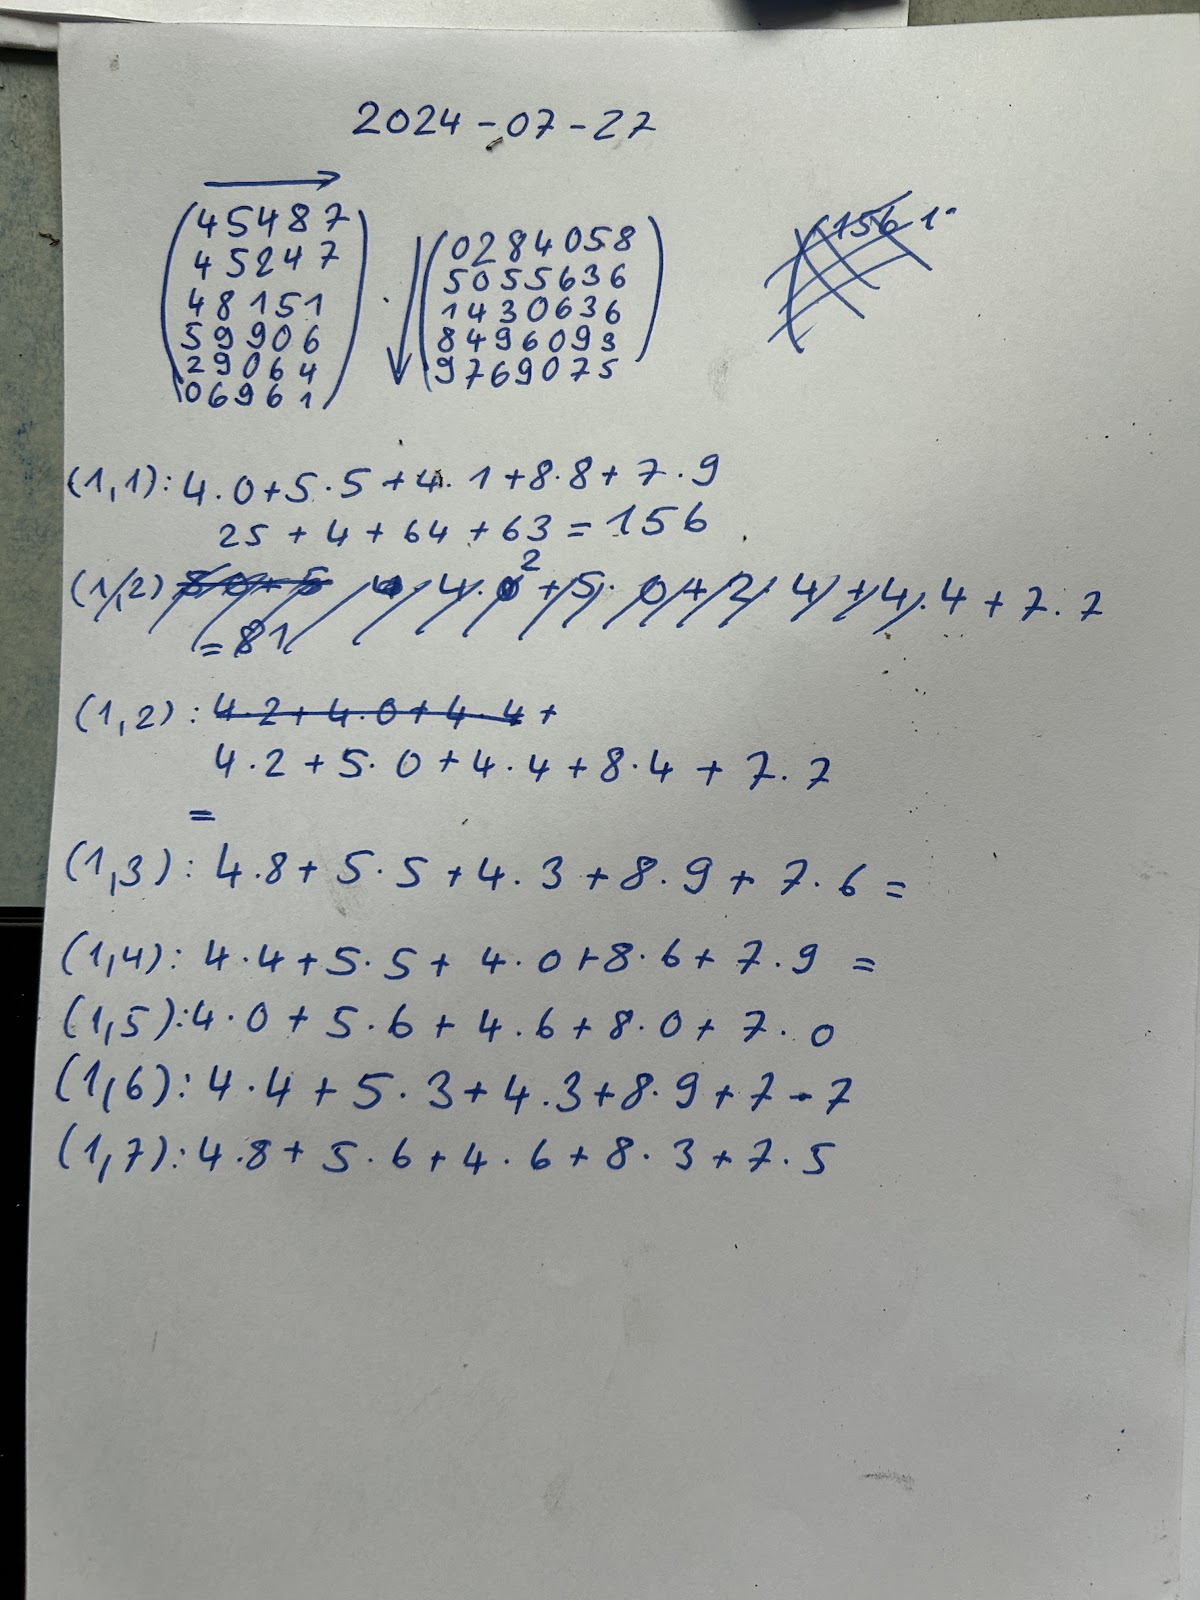 2024-07-27
45487
45247
48151
59906
29064
06961
·
0284058
5055636
1430636
8496093
9769075
(156 1
(1,1): 4·0+5·5+4·1+8·8+7·9
25+4+64+63=156
(1,2) 4·2+5·0+2·4+4·4+7·7
=81
(1,2): 4·2+4·0+4·4+
4·2+5·0+4·4+8·4+7·7
=
(1,3): 4·8+5·5+4·3+8·9+7·6=
(1,4): 4·4+5·5+4·0+8·6+7·9=
(1,5):4·0+5·6+4·6+8·0+7·0
(1,6): 4·4+5·3+4·3+8·9+7·7
(1,7):4·8+5·6+4·6+8·3+7·5